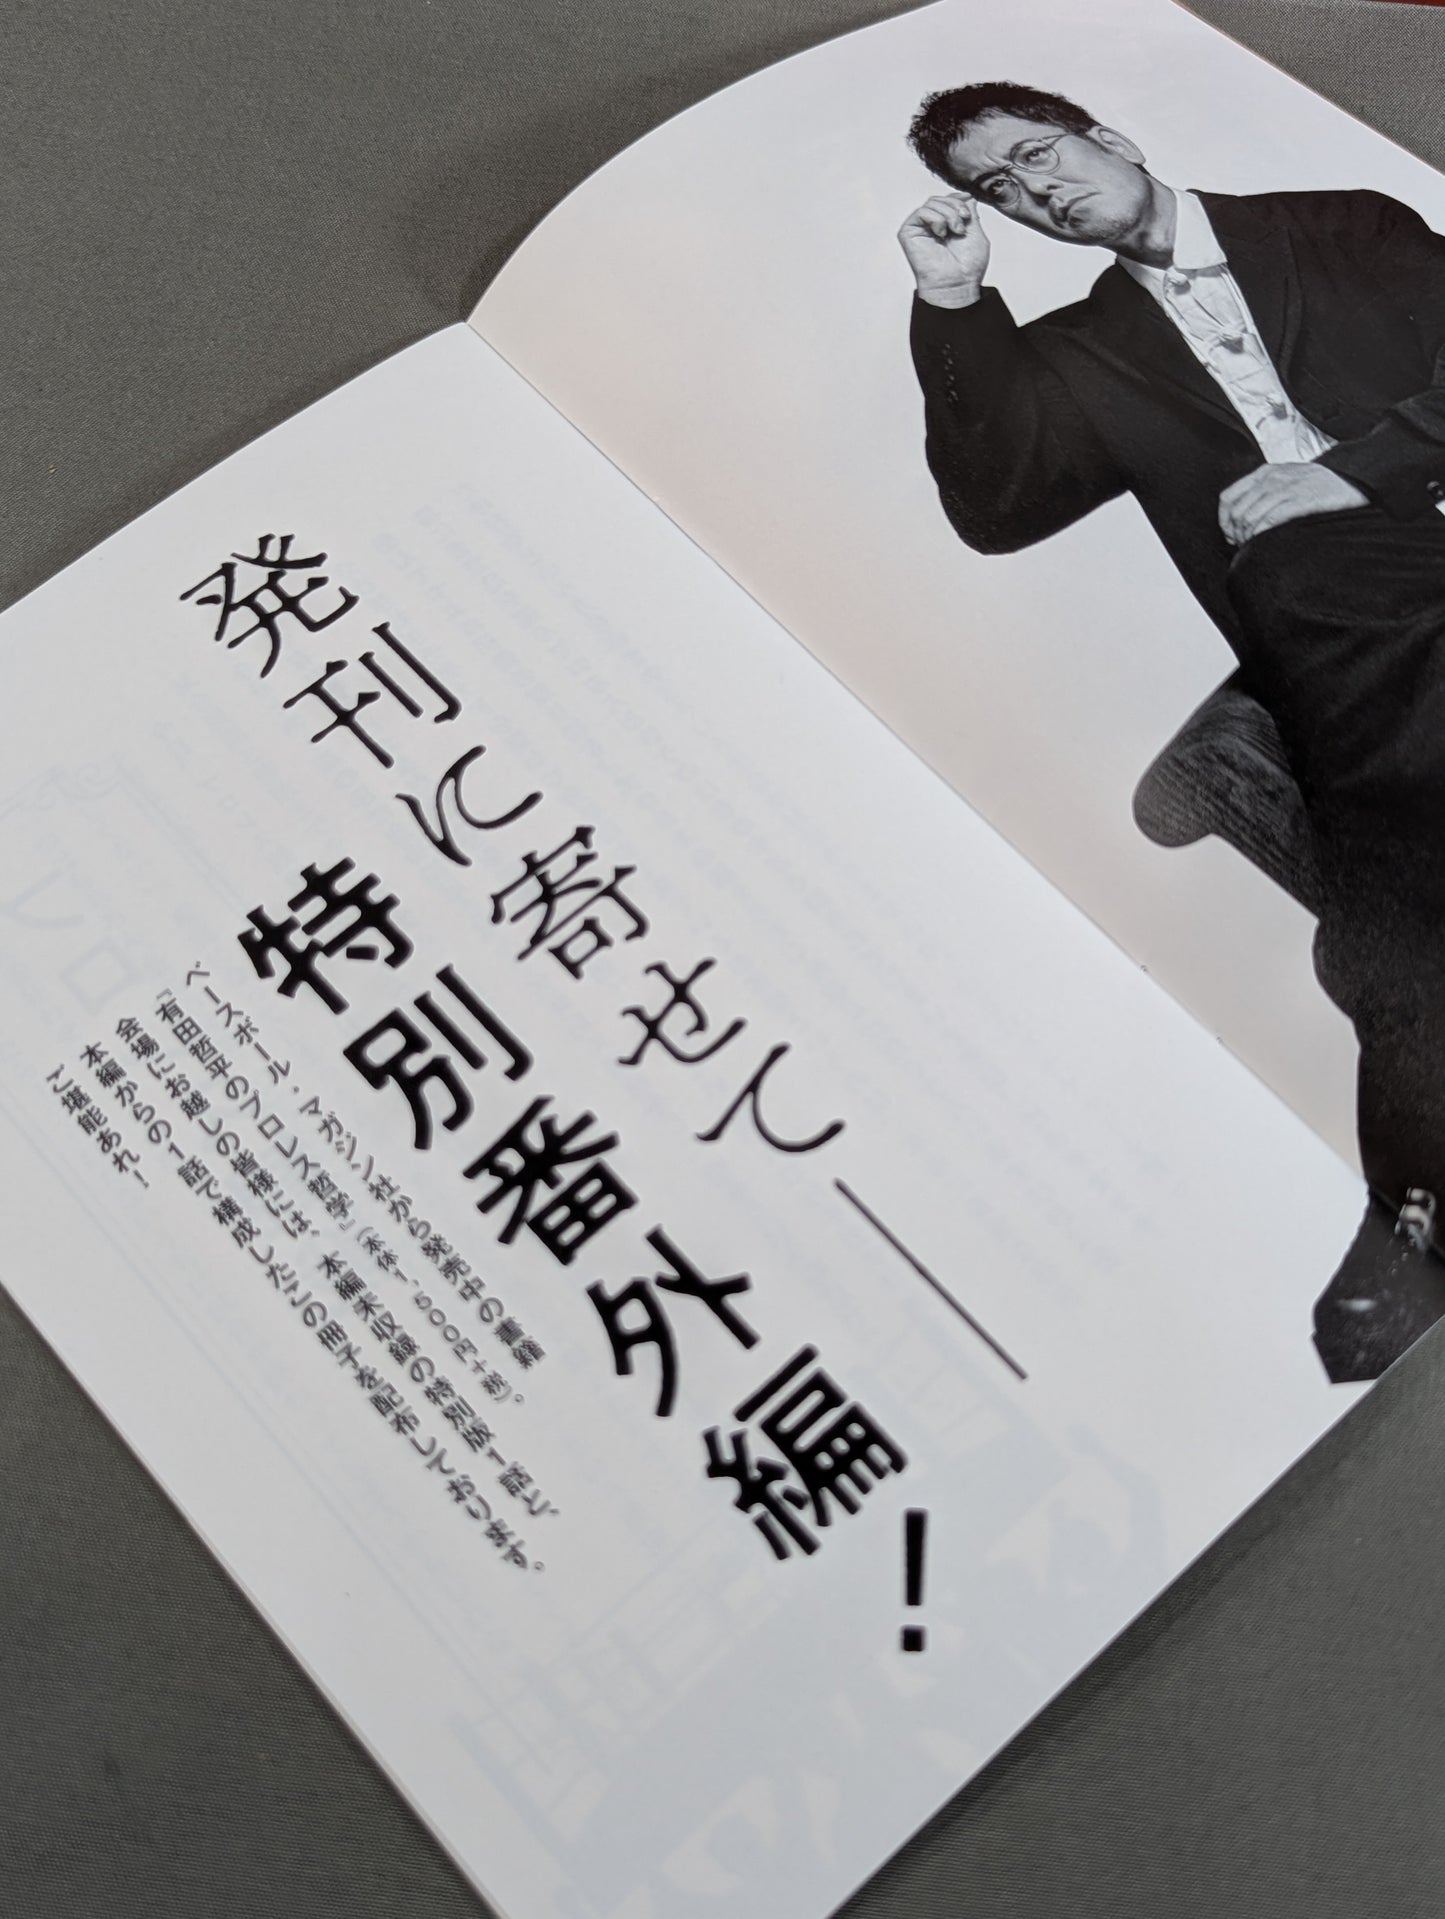 発刊に寄せて――
特別番外編！
ベースボール・マガジン社から発売中の書籍
『有田哲平のプロレス哲学』(本体1,500円+税)。
会場にお越しの皆様には、本編未収録の特別版1話と、
本編からの1話で構成したこの冊子を配布しております。
ご堪能あれ！